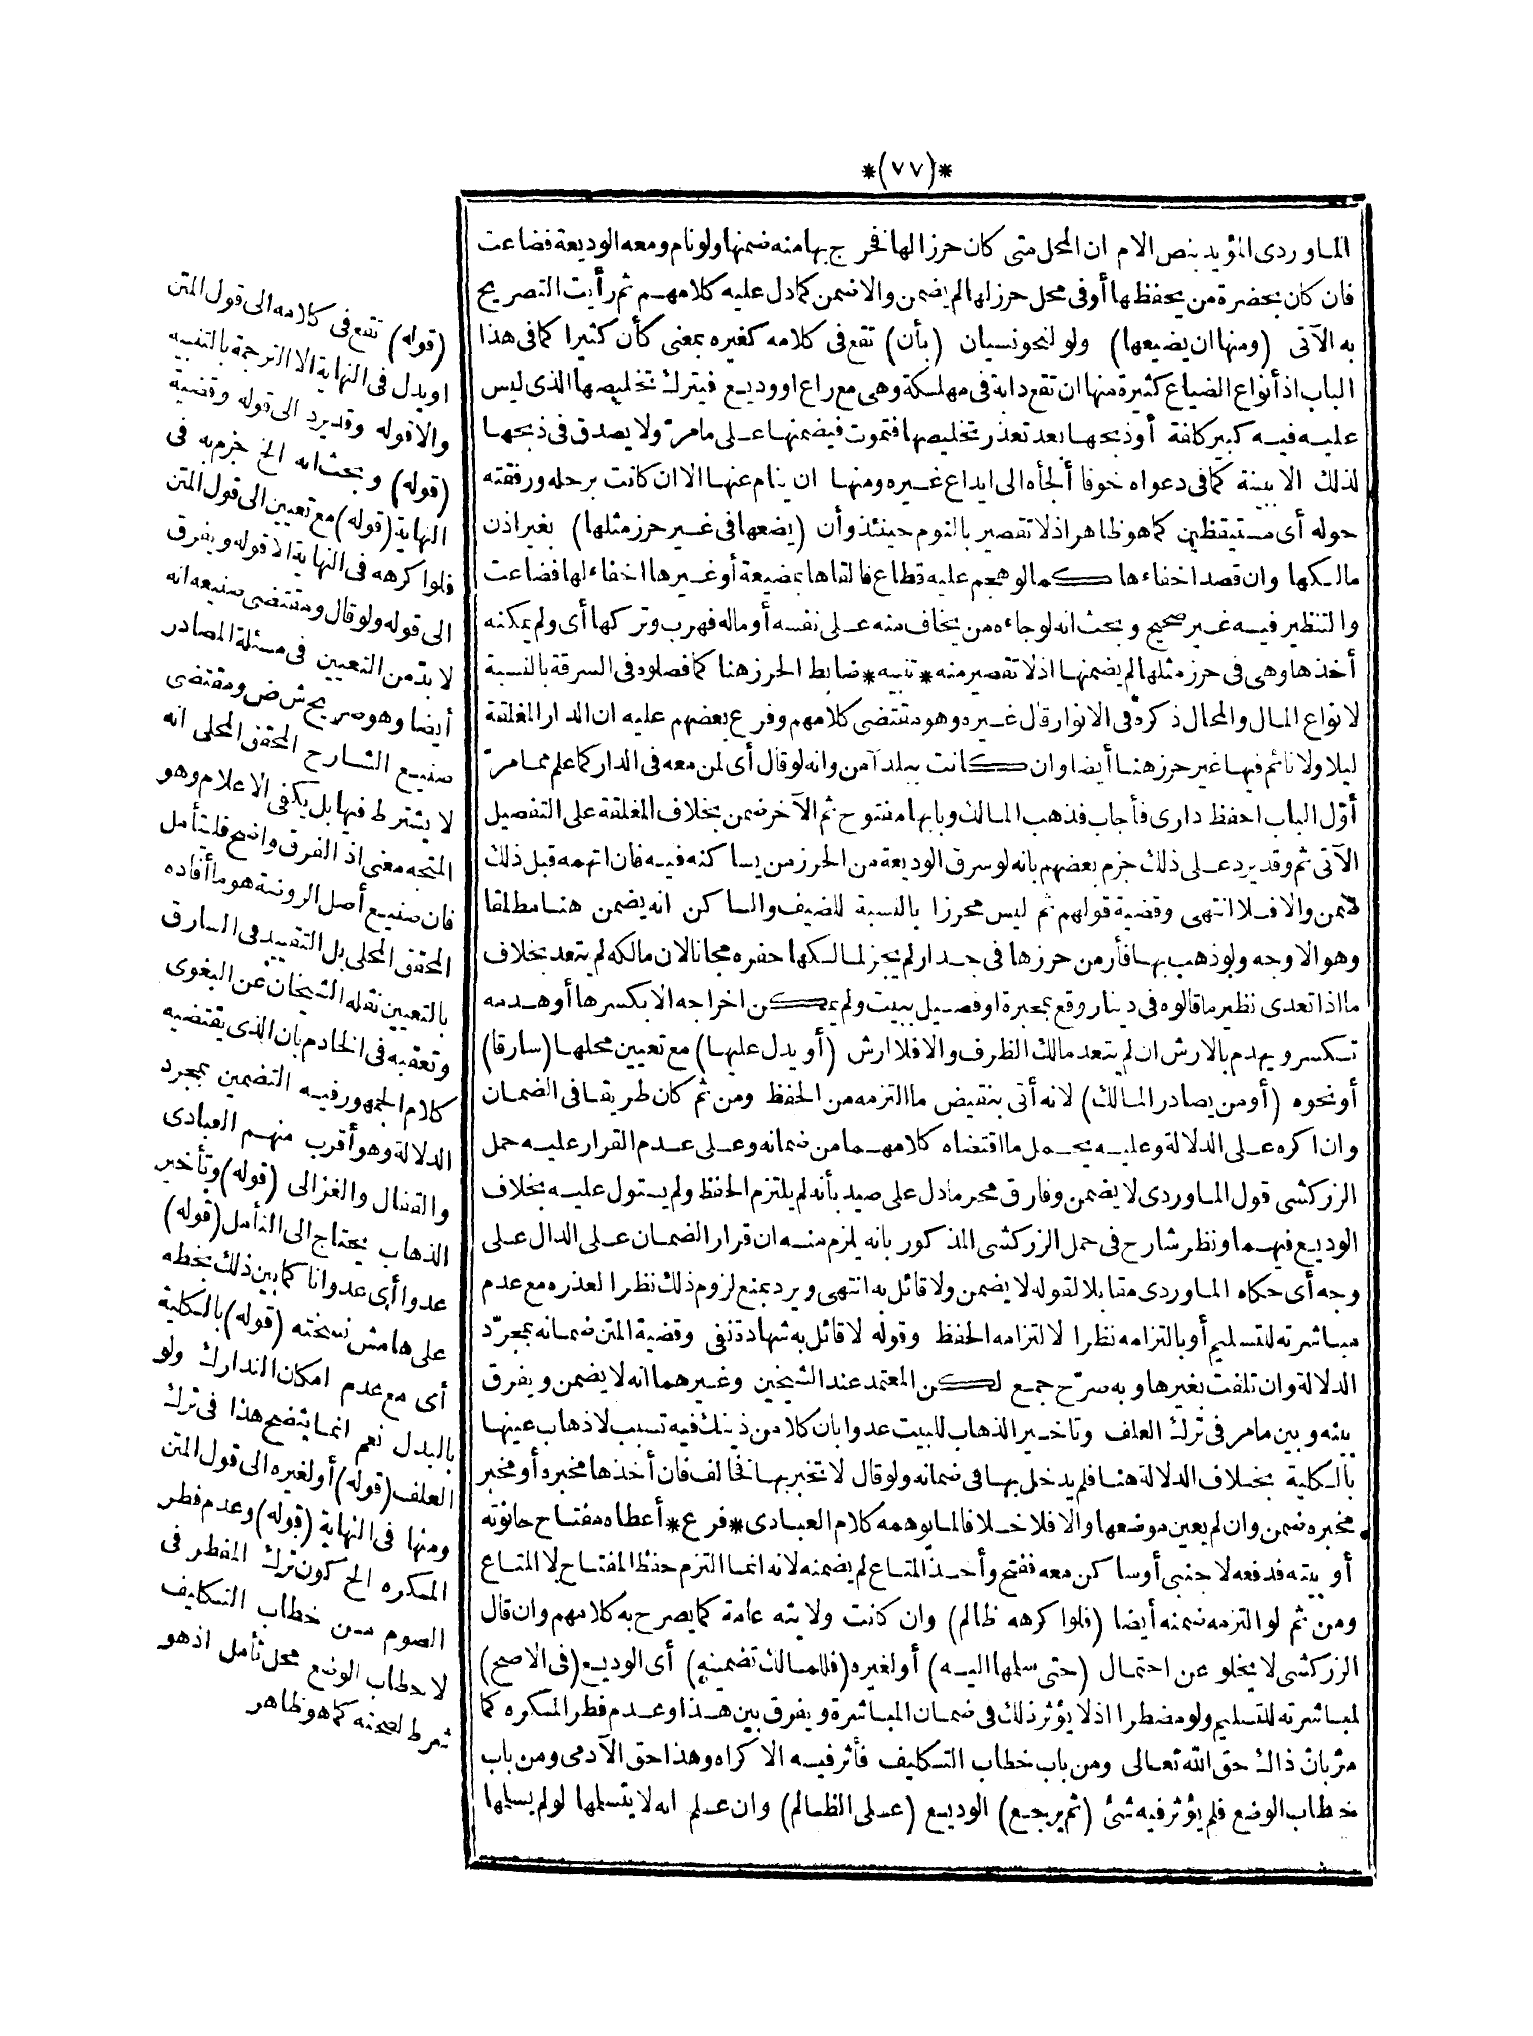 *(٧٧)*
الماوردى المؤيد بنص الام ان المحل متى كان حرزا لها فخرج بها منه ضمنها ولو نام ومعه الوديعة فضاعت
فان كان بحضرة من يحفظها أو فى محل حرز لها لم يضمن والا ضمن كما دل عليه كلامهم ثم رأيت التصريح
به الآتى (ومنها ان يضيعها) ولو لنحو نسيان (بأن) تقع فى كلامه كغيره بمعنى كأن كثيرا كما فى هذا
الباب اذ أنواع الضياع كثيرة منها ان تقع دابة فى مهلكة وهى مع راع او وديع فيترك تخليصها الذى ليس
عليه فيه كبير كلفة أو ذبحها بعد تعذر تخليصها فتموت فيضمنها على ما مرّ ولا يصدق فى ذبحها
لذلك الا ببينة كما فى دعواه خوفا ألجأه الى ايداع غيره ومنها ان ينام عنها الا ان كانت برحله ورفقته
حوله أى مستيقظين كما هو ظاهر اذ لا تقصير بالنوم حينئذ وأن (يضعها فى غير حرز مثلها) بغير اذن
مالكها وان قصد اخفاءها كما لو هجم عليه قطاع فالقاها بمضيعة أو غيرها اخفاء لها فضاعت
والتنظير فيه غير صحيح وبحث انه لو جاءه من يخاف منه على نفسه أو ماله فهرب وتركها أى ولم يمكنه
أخذها وهى فى حرز مثلها لم يضمنها اذ لا تقصير منه *تنبيه* ضابط الحرز هنا كما فصلوه فى السرقة بالنسبة
لانواع المال والمحال ذكره فى الانوار قال غيره وهو مقتضى كلامهم وفرع بعضهم عليه ان الدار المغلقة
ليلا ولا نائم فيها غير حرز هنا أيضا وان كانت ببلد آمن وانه لو قال أى لمن معه فى الدار كما علم مما مرّ
أوّل الباب احفظ دارى فأجاب فذهب المالك وبابها مفتوح ثم الآخر ضمن بخلاف المغلقة على التفصيل
الآتى ثم وقد يرد على ذلك جزم بعضهم بانه لو سرق الوديعة من الحرز من يساكنه فيه فان اتهمه قبل ذلك
ضمن والا فلا انتهى وقضية قولهم ثم ليس محرزا بالنسبة للضيف والساكن انه يضمن هنا مطلقا
وهو الاوجه ولو ذهب بها فأر من حرزها فى جدار لم يجز لمالكها حفره مجانا لان مالكه لم يتعد بخلاف
ما اذا تعدى نظير ما قالوه فى دينار وقع بمحبرة او فصيل ببيت ولم يمكن اخراجه الا بكسرها أو هدمه
تكسر ويهدم بالارش ان لم يتعد مالك الظرف والا فلا ارش (أو يدل عليها) مع تعيين محلها (سارقا)
أو نحوه (أو من يصادر المالك) لانه أتى بنقيض ما التزمه من الحفظ ومن ثم كان طريقا فى الضمان
وان اكره على الدلالة وعليه يحمل ما اقتضاه كلامهما من ضمانه وعلى عدم القرار عليه حمل
الزركشى قول الماوردى لا يضمن وفارق محرما دل على صيد بأنه لم يلتزم الحفظ ولم يستول عليه بخلاف
الوديع فيهما ونظر شارح فى حمل الزركشى المذكور بانه يلزم منه ان قرار الضمان على الدال على
وجه أى حكاه الماوردى مقابلا لقوله لا يضمن ولا قائل به انتهى ويرد بمنع لزوم ذلك نظرا لعذره مع عدم
مباشرته للتسليم أو بالتزامه نظرا لالتزامه الحفظ وقوله لا قائل به شهادة نفى وقضية المتن ضمانه بمجرّد
الدلالة وان تلفت بغيرها وبه صرّح جمع لكن المعتمد عند الشيخين وغيرهما انه لا يضمن ويفرق
بينه وبين ما مر فى ترك العلف وتأخير الذهاب للبيت عدوا بان كلا من ذينك فيه تسبب لاذهاب عينها
بالكلية بخلاف الدلالة هنا فلم يدخل بها فى ضمانه ولو قال لا تخبر بها فخالف فان أخذها مخبره أو مخبر
مخبره ضمن وان لم يعين موضعها والا فلا خلافا لما يوهمه كلام العبادى *فرع* أعطاه مفتاح حانوته
أو بيته فدفعه لاجنبى أو ساكن معه ففتح وأخذ المتاع لم يضمنه لانه انما التزم حفظ المفتاح لا المتاع
ومن ثم لو التزمه ضمنه أيضا (فلو اكرهه ظالم) وان كانت ولايته عامة كما يصرح به كلامهم وان قال
الزركشى لا يخلو عن احتمال (حتى سلمها اليه) أو لغيره (فللمالك تضمينه) أى الوديع (فى الاصح)
لمباشرته للتسليم ولو مضطرا اذ لا يؤثر ذلك فى ضمان المباشرة ويفرق بين هذا وعدم فطر المكره كما
مرّ بان ذاك حق الله تعالى ومن باب خطاب التكليف فأثر فيه الاكراه وهذا حق الآدمى ومن باب
خطاب الوضع فلم يؤثر فيه شئ (ثم يرجع) الوديع (على الظالم) وان علم انه لا يتسلمها لو لم يسلمها
(قوله) تقع فى كلامه الى قول المتن
او يدل فى النهاية الا الترجمة بالتنبيه
والا قوله وقد يرد الى قوله وقضية
(قوله) وبحث انه الخ جزم به فى
النهاية (قوله) مع تعيين الى قول المتن
فلو اكرهه فى النهاية الا قوله ويفرق
الى قوله ولو قال ومقتضى صنيعه انه
لا بدّ من التعيين فى مسئلة المصادر
أيضا وهو صريح ش ض ومقتضى
صنيع الشارح المحقق المحلى انه
لا يشترط فيها بل يكفى الاعلام وهو
المتجه معنى اذ الفرق واضح فليتأمل
فان صنيع أصل الروضة هو ما أفاده
المحقق المحلى بل التقييد فى السارق
بالتعيين نقله الشيخان عن البغوى
وتعقبه فى الخادم بان الذى يقتضيه
كلام الجمهور فيه التضمين بمجرد
الدلالة وهو أقرب منهم العبادى
والقفال والغزالى (قوله) وتأخير
الذهاب يحتاج الى التأمل (قوله)
عدوا أى عدوانا كما بين ذلك بخطه
على هامش نسخته (قوله) بالكلية
أى مع عدم امكان التدارك ولو
بالبدل نعم انما يتضح هذا فى ترك
العلف (قوله) أو لغيره الى قول المتن
ومنها فى النهاية (قوله) وعدم فطر
المكره الخ كون ترك المفطر فى
الصوم من خطاب التكليف
لا خطاب الوضع محل تأمل اذ هو
شرط لصحته كما هو ظاهر